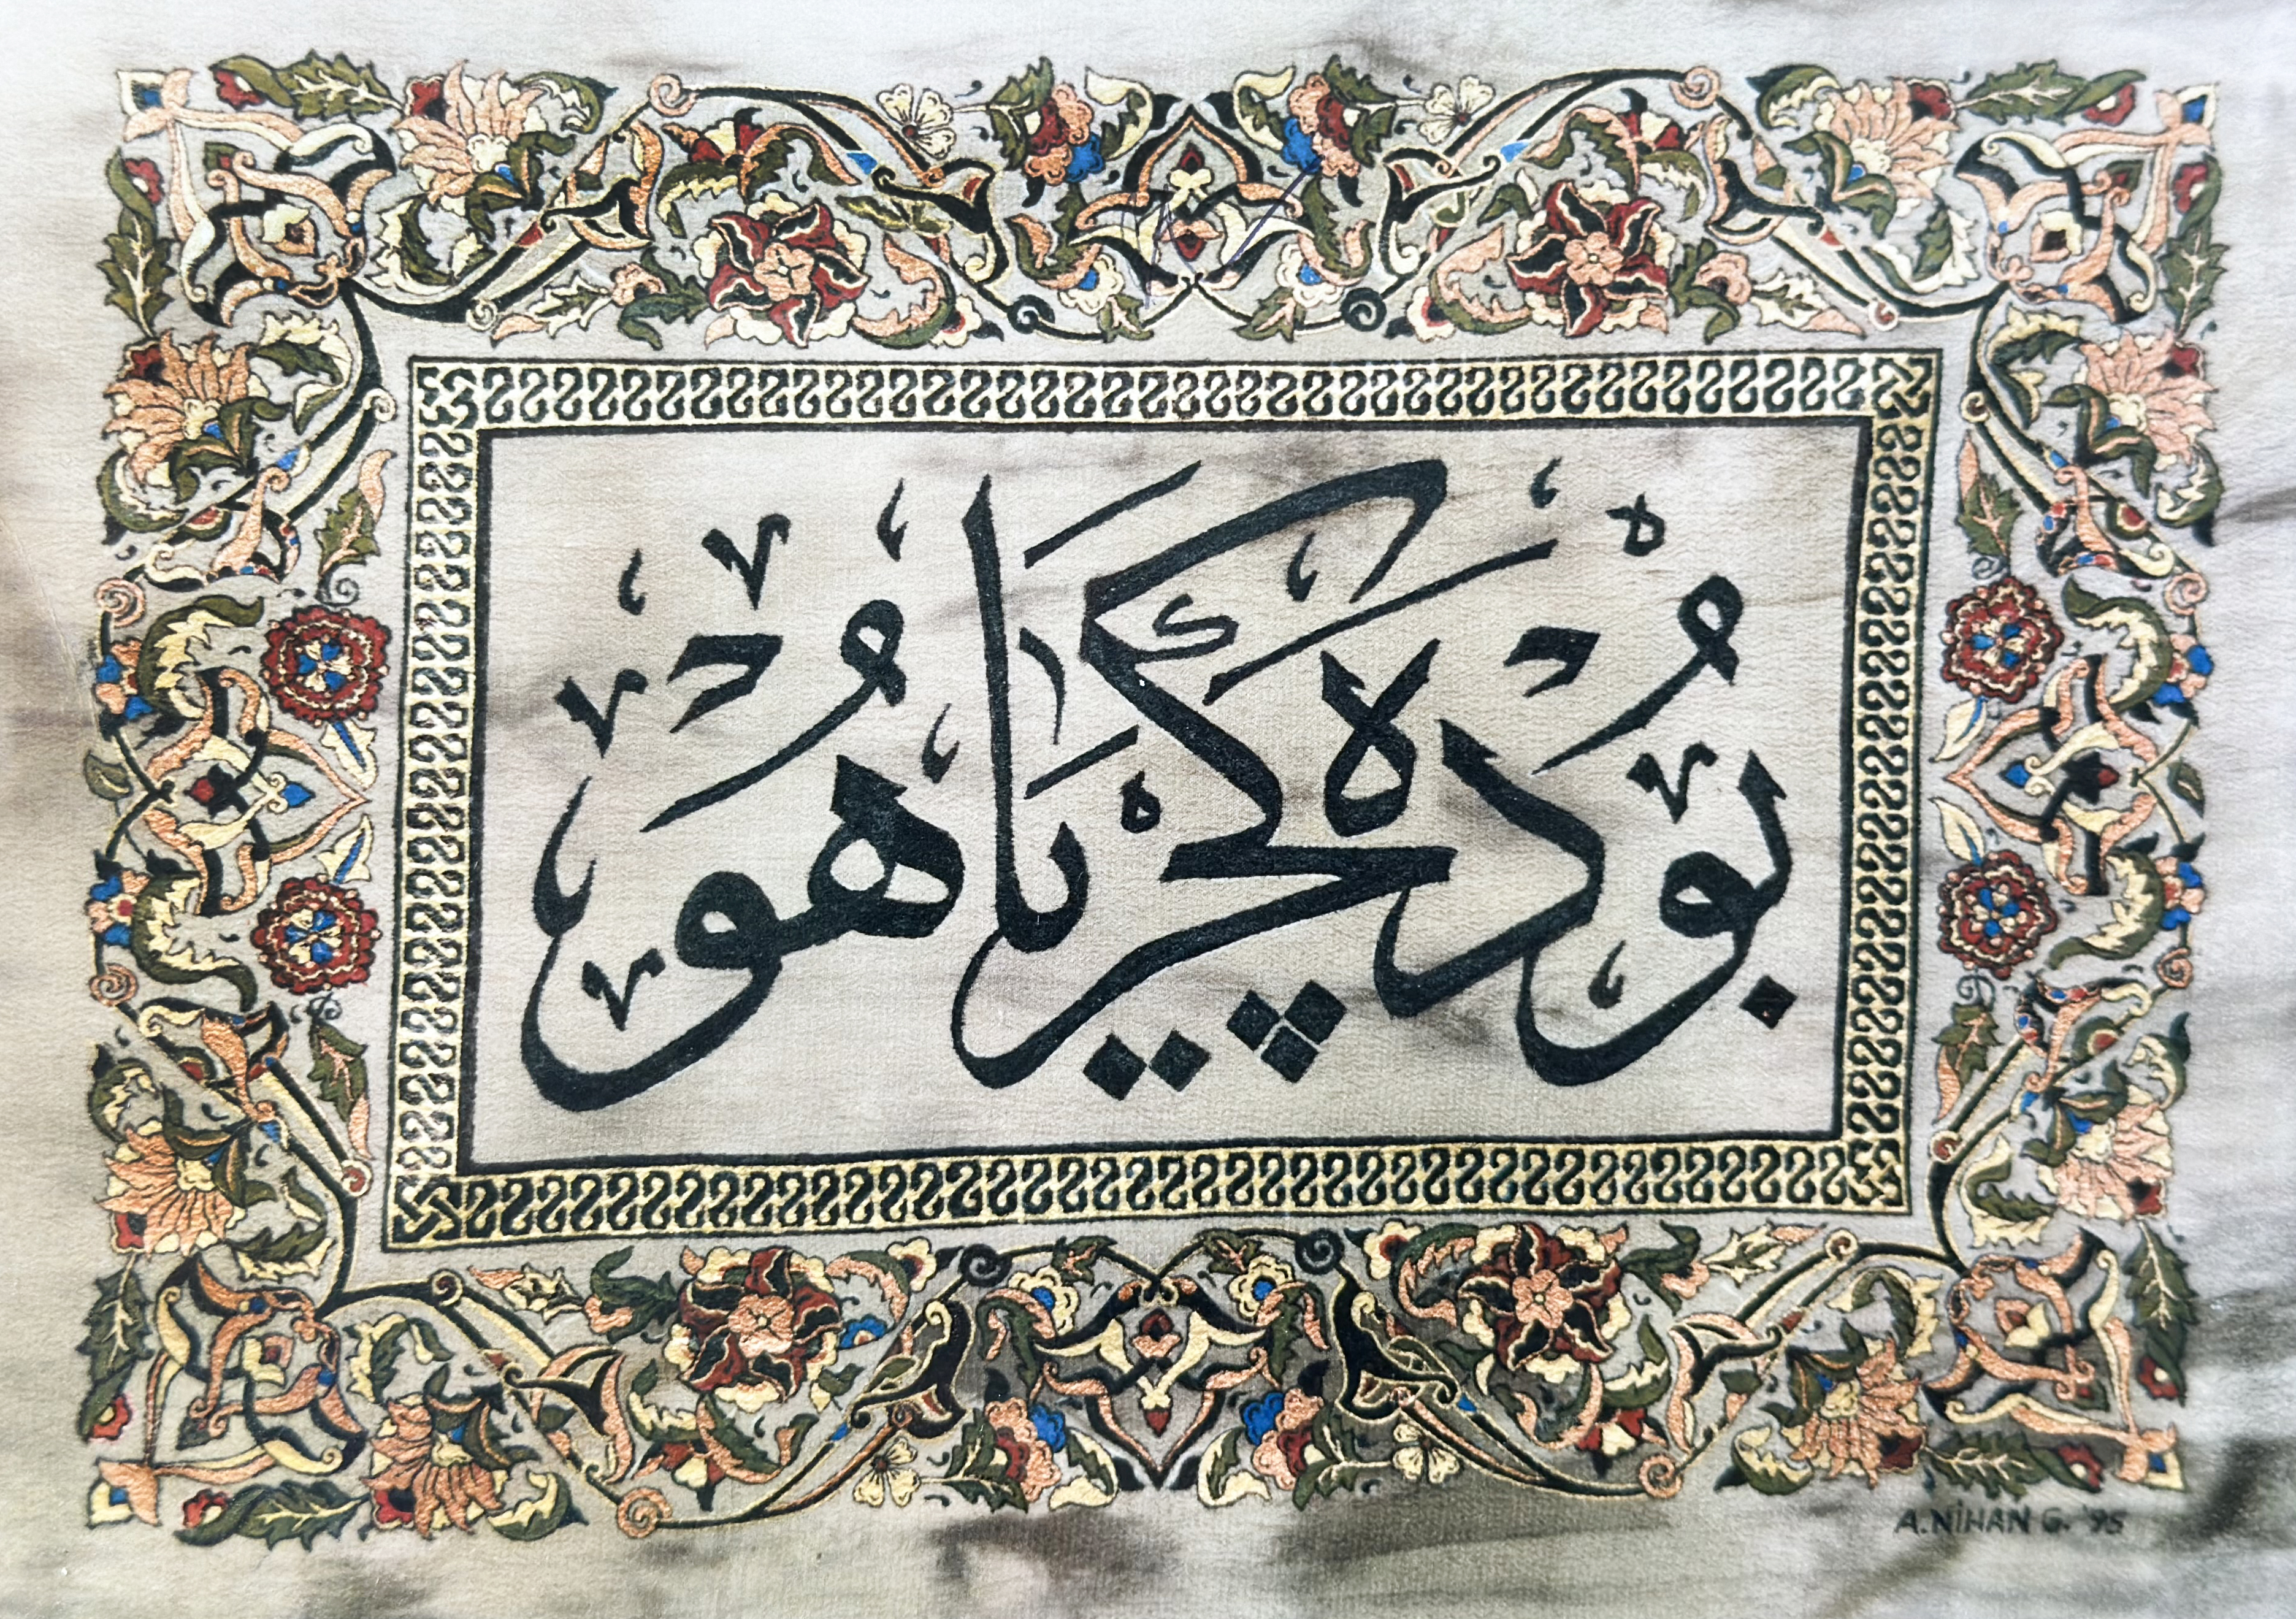 بو ده كچر يا هو
A.NİHAN G. '95